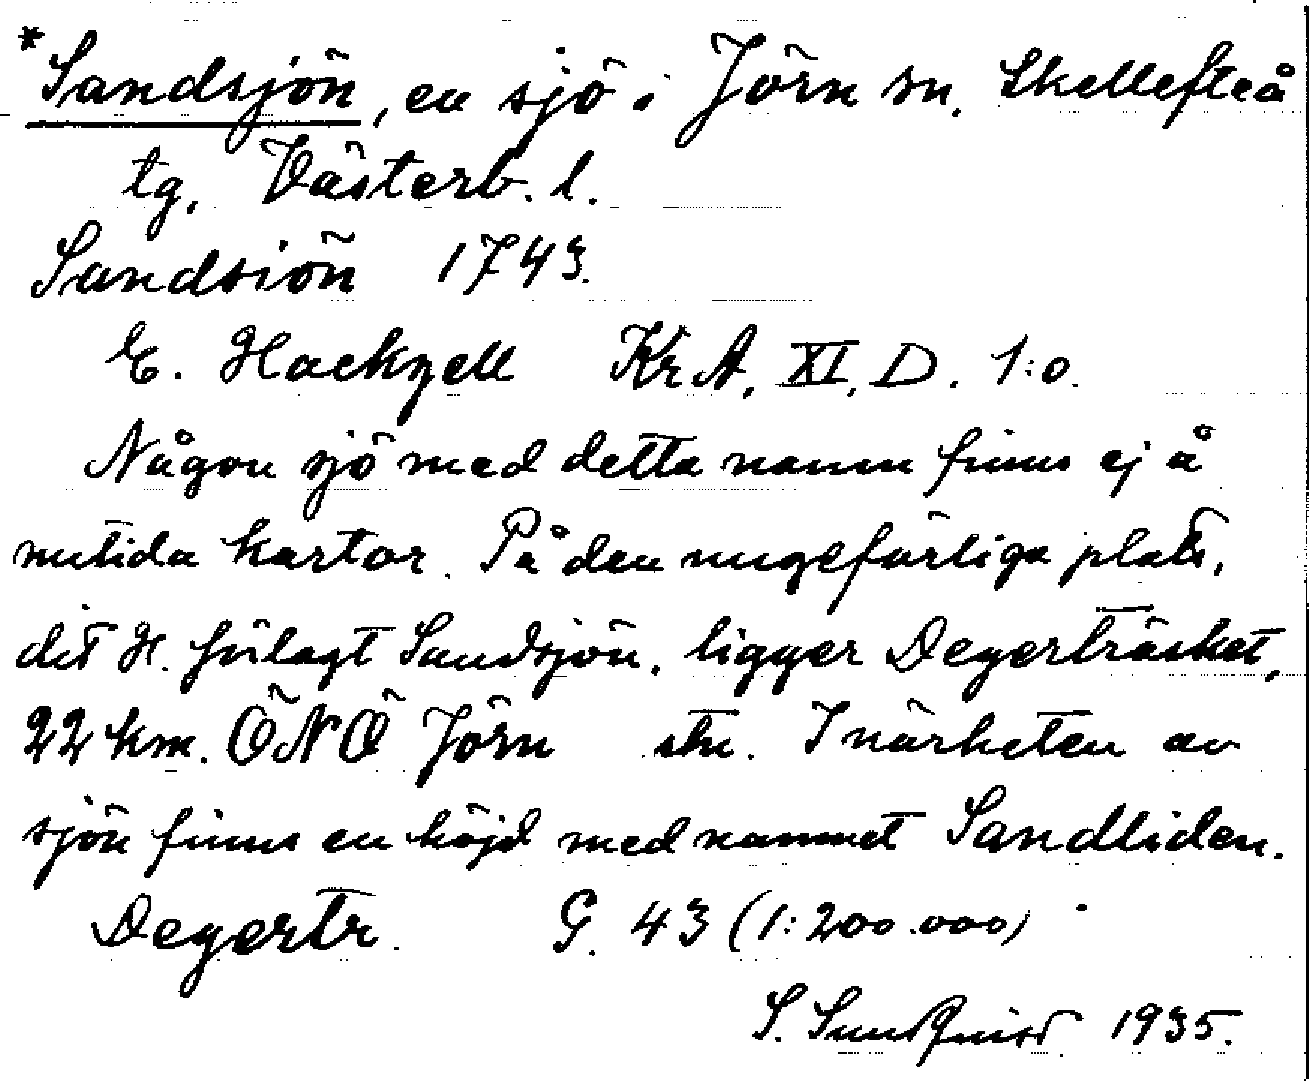 *Sandsjön, en sjö i Jörn sn, Skellefteå
tg, Västerb. l.
Sandsiön 1743.
E. Hackzell KrA, XI, D. 1:o.
Någon sjö med detta namn finns ej å
nutida kartor. På den ungefärliga plats,
dit H. förlagt Sandsjön, ligger Degerträsket,
22 km. ÖNÖ Jörn stn. I närheten av
sjön finns en höjd med namnet Sandliden.
Degertr. G. 43 (1:200.000)
S. Sundquist 1935.